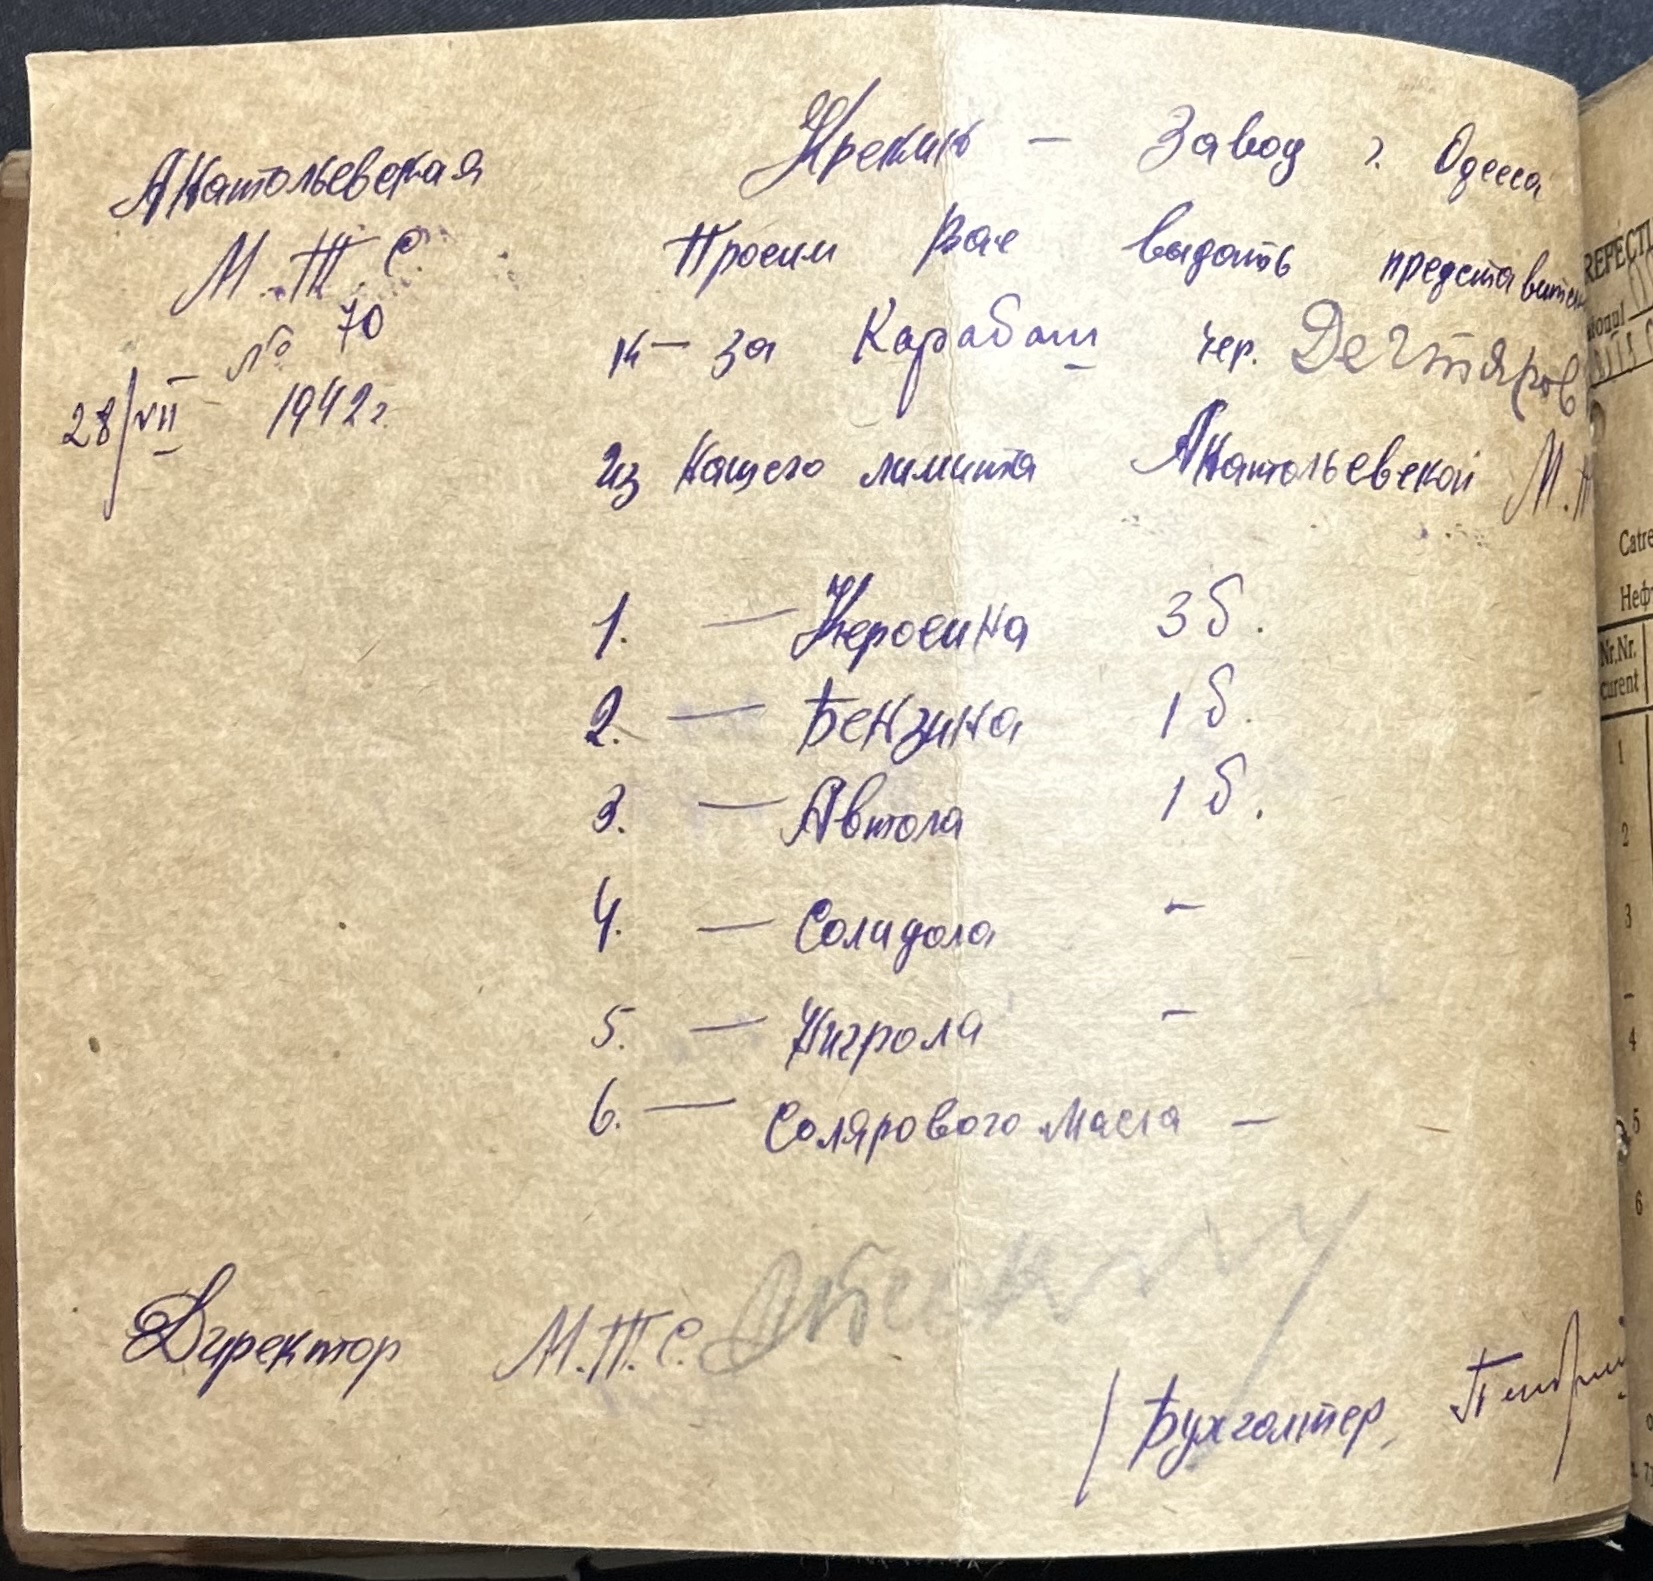 Анатольевская
М.Т.С.
№ 70
28/VII 1942 г.
Крекинк – Завод г. Одесса
Просим Вас выдать представител
к-за Карабаш чер. Дегтяров
из нашего лимита Анатольевской М.Т
1. – Керосина 3 б.
2. – Бензина 1 б.
3. – Автола 1 б.
4. – Солидола –
5. – Нигрола –
6. – Солярового масла –
Директор М.Т.С.
Бухгалтер
Catre
Неф
Nr.Nr.
curent
1
2
3
4
5
6